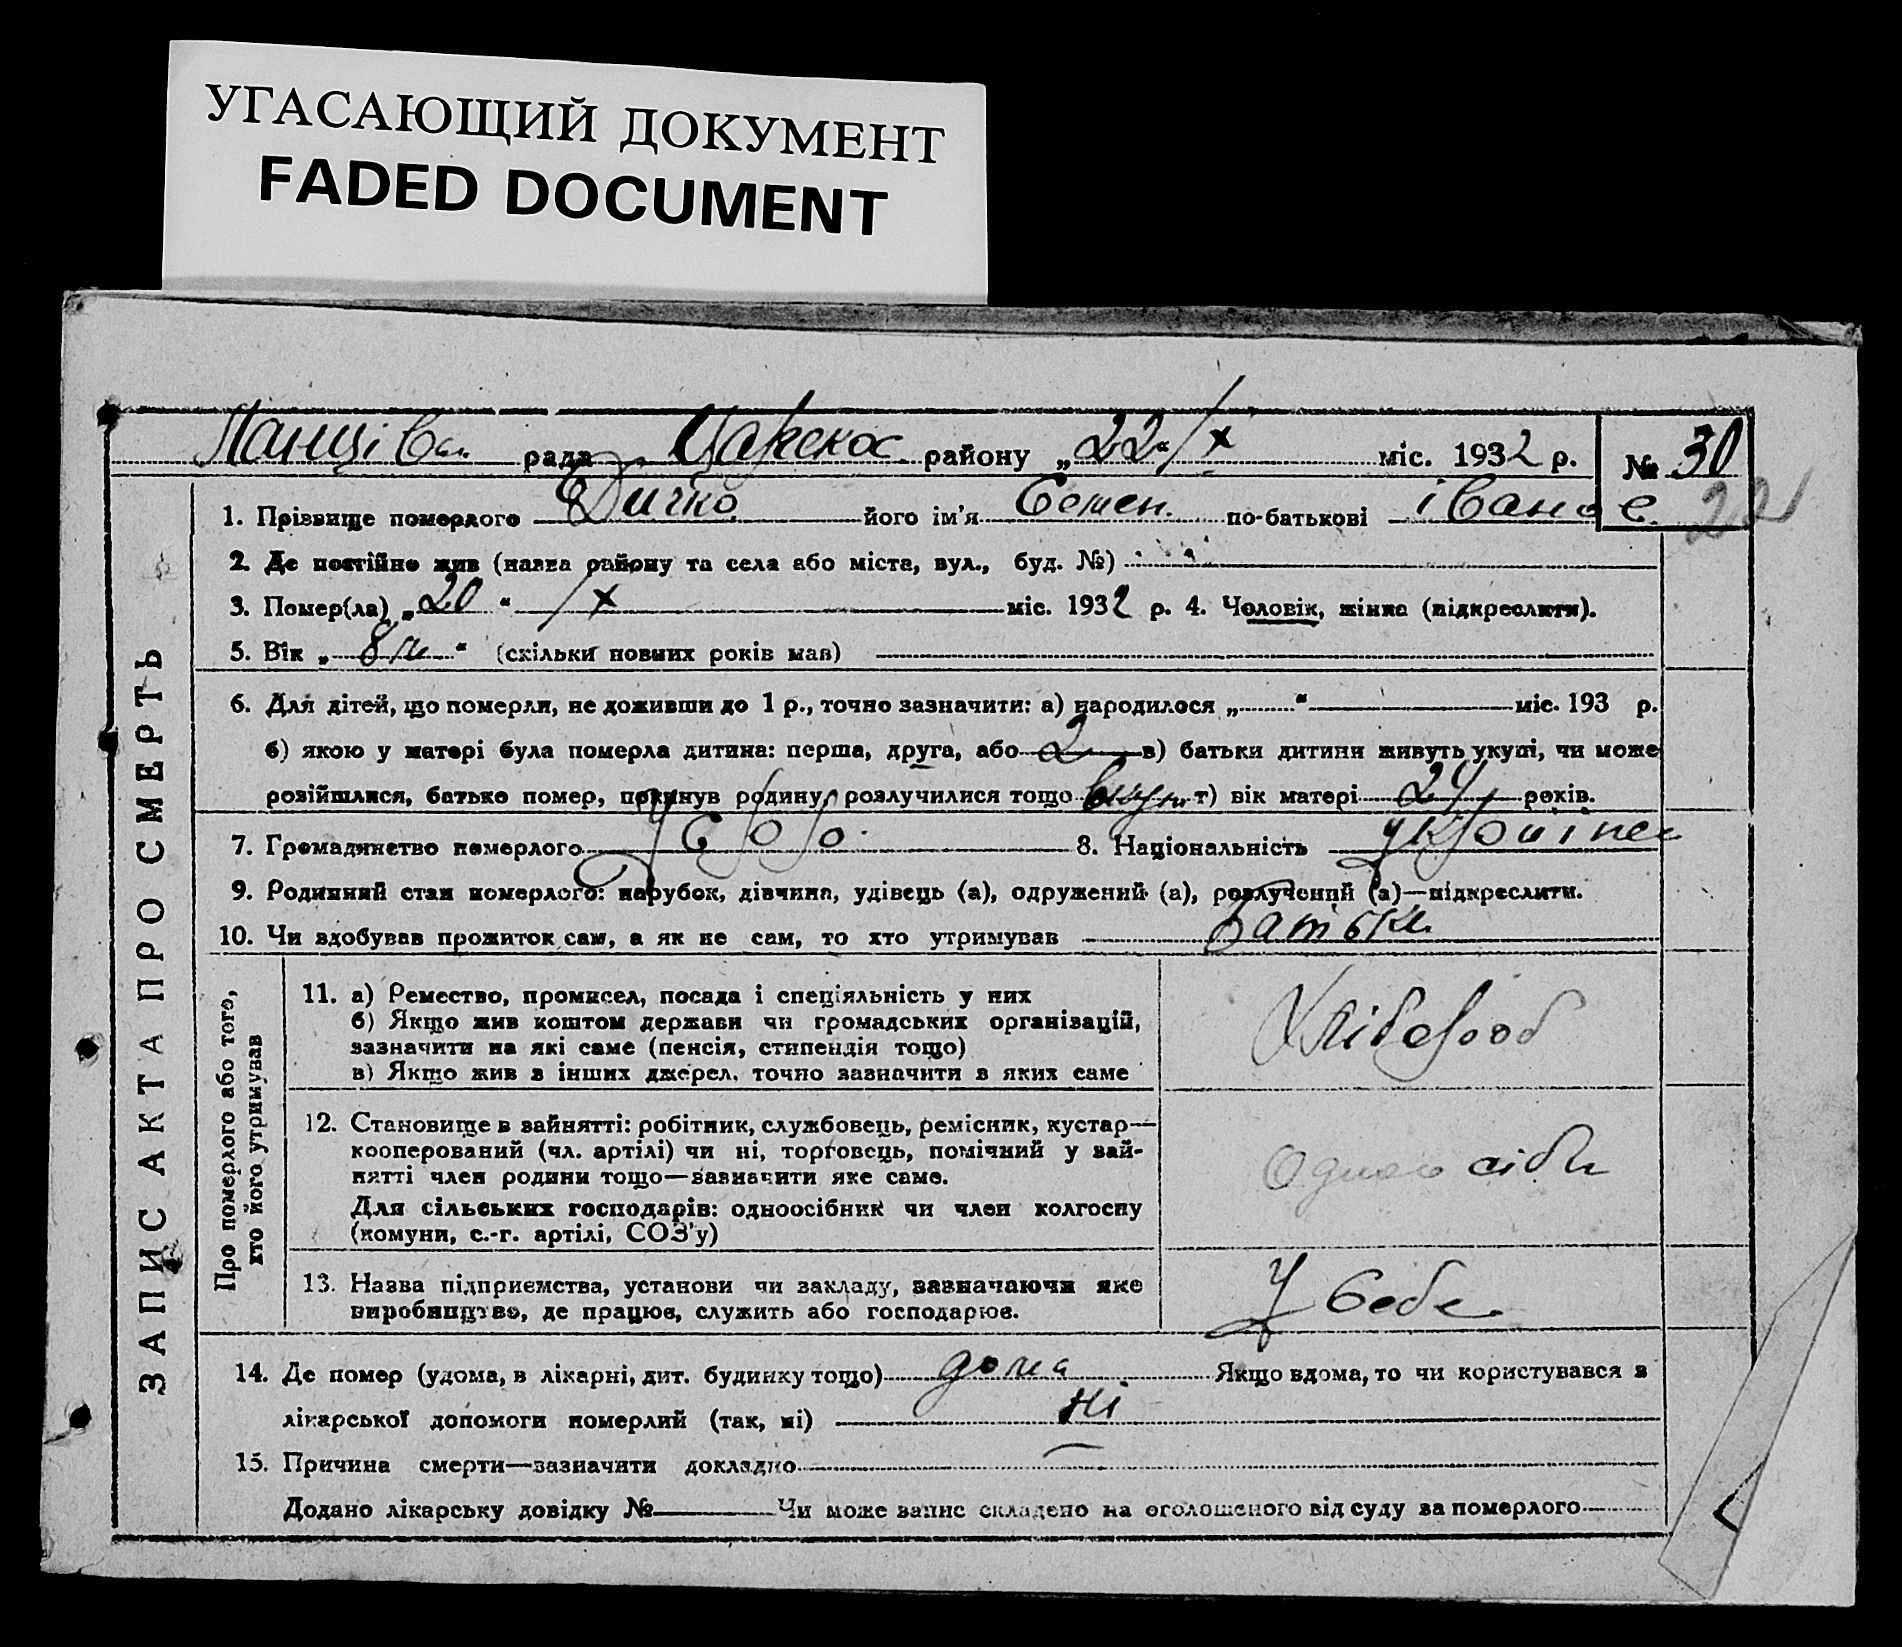 УГАСАЮЩИЙ ДОКУМЕНТ
FADED DOCUMENT
рада району „22“ /X міс. 1932 р. № 30
1. Прізвище померлого Дичко його ім'я Семен по-батькові Іванов.
2. Де постійно жив (назва району та села або міста, вул., буд. №)
3. Помер(ла) „20“ /X міс. 1932 р. 4. Чоловік, жінка (підкреслити).
5. Вік „8 м“ (скільки повних років мав)
6. Для дітей, що померли, не доживши до 1 р., точно зазначити: а) народилося „ “ міс. 193 р.
б) якою у матері була померла дитина: перша, друга, або 2 в) батьки дитини живуть укупі, чи може
розійшлися, батько помер, покинув родину, розлучилися тощо г) вік матері 24 років.
7. Громадянство померлого УСРР 8. Національність українец
9. Родинний стан померлого: парубок, дівчина, удівець (а), одружений (а), розлучений (а)—підкреслити.
10. Чи здобував прожиток сам, а як не сам, то хто утримував Батьки
ЗАПИС АКТА ПРО СМЕРТЬ
Про померлого або того,
хто його утримував
11. а) Ремество, промисел, посада і спеціяльність у них
б) Якщо жив коштом держави чи громадських організацій,
зазначити на які саме (пенсія, стипендія тощо)
в) Якщо жив з інших джерел, точно зазначити з яких саме
Хлібороб
12. Становище в занятті: робітник, службовець, ремісник, кустар—
кооперований (чл. артілі) чи ні, торговець, помічний у зай-
нятті член родини тощо—зазначити яке саме.
Для сільських господарів: одноосібник чи член колгоспу
(комуни, с.-г. артілі, СОЗ'у)
13. Назва підприємства, установи чи закладу, зазначаючи яке
виробництво, де працює, служить або господарює.
У себе
14. Де помер (удома, в лікарні, дит. будинку тощо) дома Якщо вдома, то чи користувався з
лікарської допомоги померлий (так, ні) ні
15. Причина смерти—зазначити докладно —
Додано лікарську довідку № Чи може запис складено на оголошеного від суду за померлого